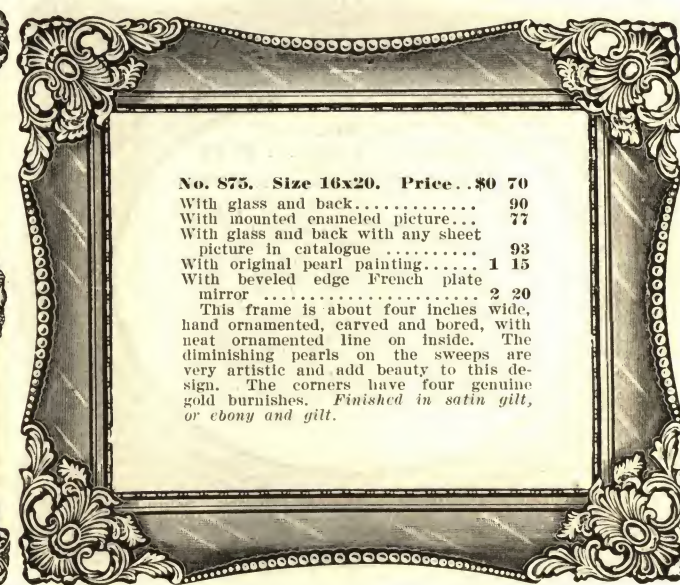 No. 875. Size 16x20. Price..$0 70
With glass and back............. 90
With mounted enameled picture... 77
With glass and back with any sheet
picture in catalogue .......... 93
With original pearl painting...... 1 15
With beveled edge French plate
mirror ...................... 2 20
This frame is about four inches wide,
hand ornamented, carved and bored, with
neat ornamented line on inside. The
diminishing pearls on the sweeps are
very artistic and add beauty to this de-
sign. The corners have four genuine
gold burnishes. Finished in satin gilt,
or ebony and gilt.